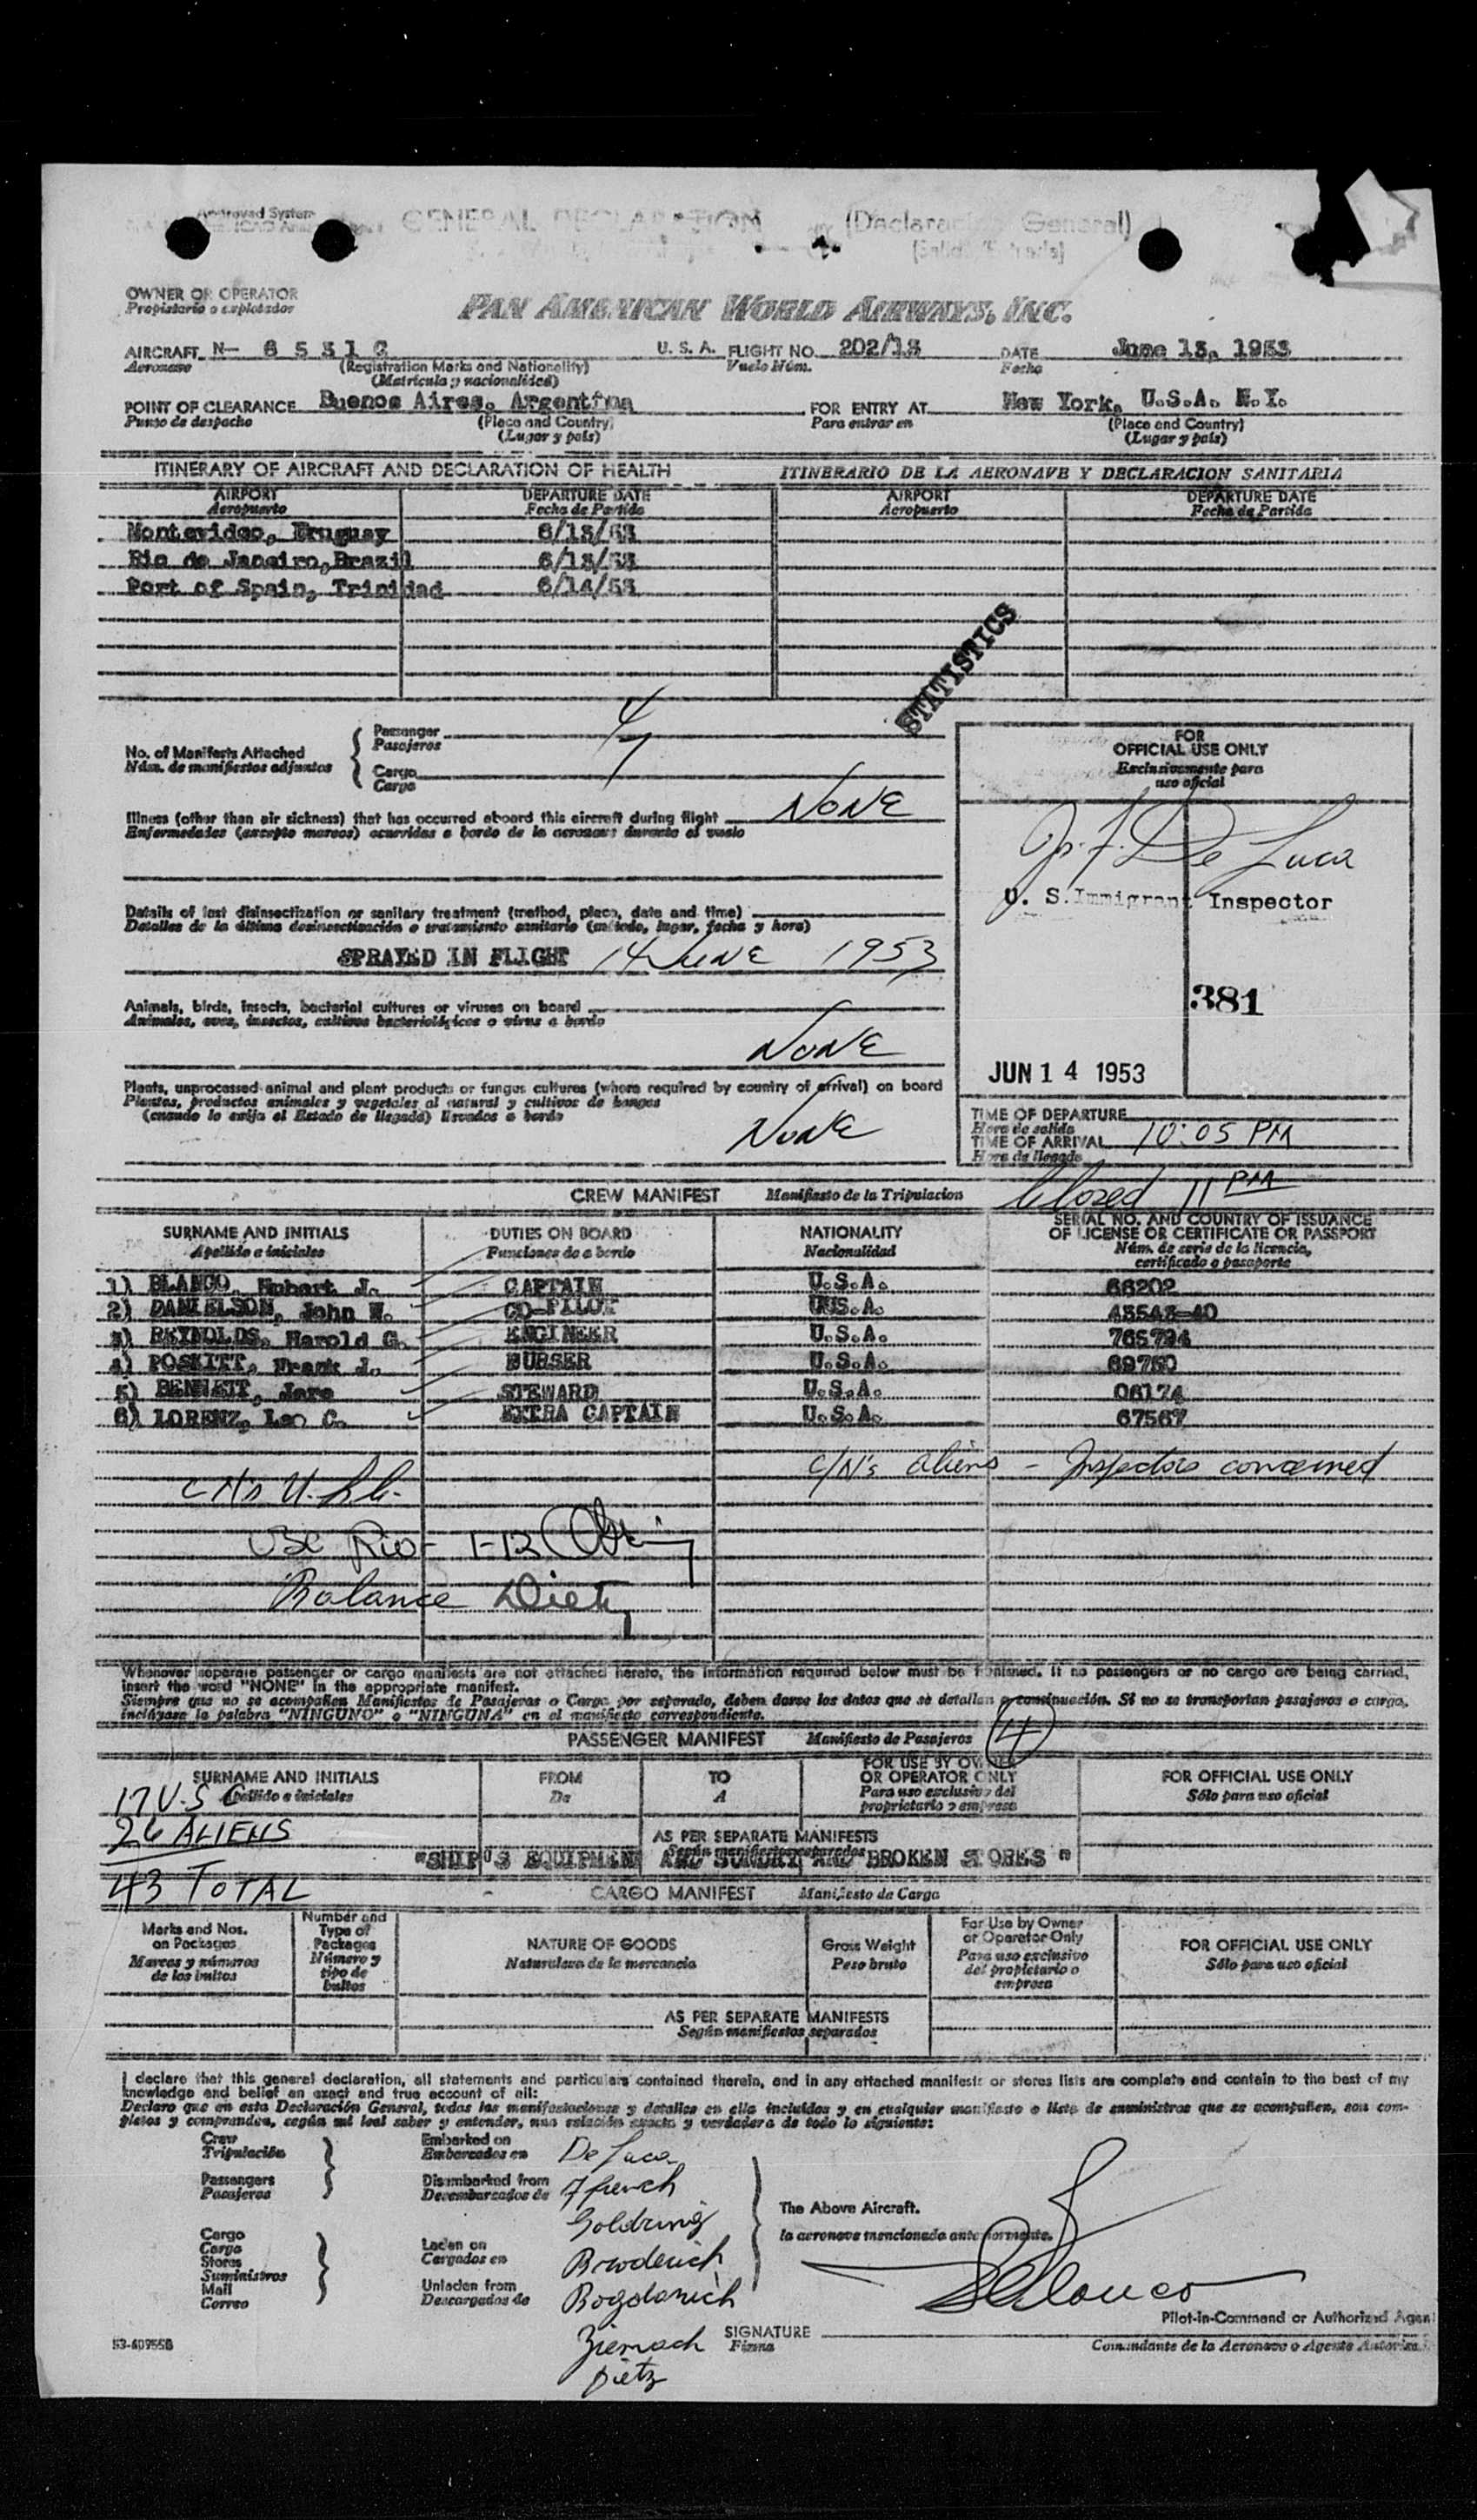 Approved System
GENERAL DECLARATION (Declaración General)
OWNER OR OPERATOR
Propietario o explotador
PAN AMERICAN WORLD AIRWAYS, INC.
AIRCRAFT N- 6531C U. S. A. FLIGHT NO. 202/13 DATE June 13, 1953
Aeronave (Registration Marks and Nationality) Vuelo Núm. Fecha
(Matrícula y nacionalidad)
POINT OF CLEARANCE Buenos Aires, Argentina FOR ENTRY AT New York, U.S.A. N.Y.
Punto de despacho (Place and Country) Para entrar en (Place and Country)
(Lugar y país) (Lugar y país)
ITINERARY OF AIRCRAFT AND DECLARATION OF HEALTH ITINERARIO DE LA AERONAVE Y DECLARACION SANITARIA
AIRPORT DEPARTURE DATE AIRPORT DEPARTURE DATE
Aeropuerto Fecha de Partida Aeropuerto Fecha de Partida
Montevideo, Uruguay 6/13/53
Rio de Janeiro, Brazil 6/13/53
Port of Spain, Trinidad 6/14/53
STATISTICS
No. of Manifests Attached
Núm. de manifiestos adjuntos
Passenger 4
Pasajeros
Cargo
Carga
FOR
OFFICIAL USE ONLY
Exclusivamente para
uso oficial
Illness (other than air sickness) that has occurred aboard this aircraft during flight NONE
Enfermedades (excepto mareos) ocurridas a bordo de la aeronave durante el vuelo
De Luca
U. S. Immigrant Inspector
Details of last disinsectization or sanitary treatment (method, place, date and time)
Detalles de la última desinsectización o tratamiento sanitario (método, lugar, fecha y hora)
SPRAYED IN FLIGHT 14 JUNE 1953
381
Animals, birds, insects, bacterial cultures or viruses on board
Animales, aves, insectos, cultivos bacteriológicos o virus a bordo
NONE
JUN 14 1953
Plants, unprocessed animal and plant products or fungus cultures (where required by country of arrival) on board
Plantas, productos animales y vegetales al natural y cultivos de hongos
(cuando lo exija el Estado de llegada) llevados a bordo
NONE
TIME OF DEPARTURE
Hora de salida
TIME OF ARRIVAL 10:05 PM
Hora de llegada
Closed 11 PM
CREW MANIFEST Manifiesto de la Tripulacion
SURNAME AND INITIALS DUTIES ON BOARD NATIONALITY SERIAL NO. AND COUNTRY OF ISSUANCE
OF LICENSE OR CERTIFICATE OR PASSPORT
Apellido e iniciales Funciones de a bordo Nacionalidad Núm. de serie de la licencia,
certificado o pasaporte
1) BLANCO, Hobart J. CAPTAIN U.S.A. 66202
2) DANIELSON, John W. CO-PILOT U.S.A. 43543-40
3) REYNOLDS, Harold G. ENGINEER U.S.A. 765794
4) POSKITT, Frank J. PURSER U.S.A. 69750
5) BENNETT, Jare STEWARD U.S.A. 06174
6) LORENZ, Leo C. EXTRA CAPTAIN U.S.A. 67567
C/N's aliens - Inspectors concerned
Rio
Balance Dietz
Whenever separate passenger or cargo manifests are not attached hereto, the information required below must be furnished. If no passengers or no cargo are being carried,
insert the word "NONE" in the appropriate manifest.
Siempre que no se acompañen Manifiestos de Pasajeros o Carga por separado, deben darse los datos que se detallan a continuación. Si no se transportan pasajeros o carga,
inclúyase la palabra "NINGUNO" o "NINGUNA" en el manifiesto correspondiente.
PASSENGER MANIFEST Manifiesto de Pasajeros 4
SURNAME AND INITIALS FROM TO FOR USE BY OWNER
OR OPERATOR ONLY FOR OFFICIAL USE ONLY
Apellido e iniciales De A Para uso exclusivo del
propietario o empresa Sólo para uso oficial
17 U.S.C
26 ALIENS
AS PER SEPARATE MANIFESTS
Según manifiestos separados
"SHIP'S EQUIPMENT AND SUNDRY AND BROKEN STORES"
43 TOTAL
CARGO MANIFEST Manifiesto de Carga
Marks and Nos.
on Packages
Marcas y números
de los bultos
Number and
Type of
Packages
Número y
tipo de
bultos
NATURE OF GOODS
Naturaleza de la mercancía
Gross Weight
Peso bruto
For Use by Owner
or Operator Only
Para uso exclusivo
del propietario o
empresa
FOR OFFICIAL USE ONLY
Sólo para uso oficial
AS PER SEPARATE MANIFESTS
Según manifiestos separados
I declare that this general declaration, all statements and particulars contained therein, and in any attached manifests or stores lists are complete and contain to the best of my
knowledge and belief an exact and true account of all:
Declaro que en esta Declaración General, todas las manifestaciones y detalles en ella incluidos y en cualquier manifiesto o lista de suministros que se acompañen, son com-
pletos y comprenden, según mi leal saber y entender, una relación exacta y verdadera de todo lo siguiente:
Crew
Tripulación
Passengers
Pasajeros
Embarked on
Embarcados en
Disembarked from
Desembarcados de
De Luca
French
Goldring
Broderick
Bogdanich
Ziemach
Dietz
Cargo
Carga
Stores
Suministros
Mail
Correo
Laden on
Cargados en
Unladen from
Descargados de
The Above Aircraft.
la aeronave mencionada anteriormente.
Blanco
SIGNATURE
Firma
Pilot-in-Command or Authorized Agent
Comandante de la Aeronave o Agente Autoriza
53-40955B